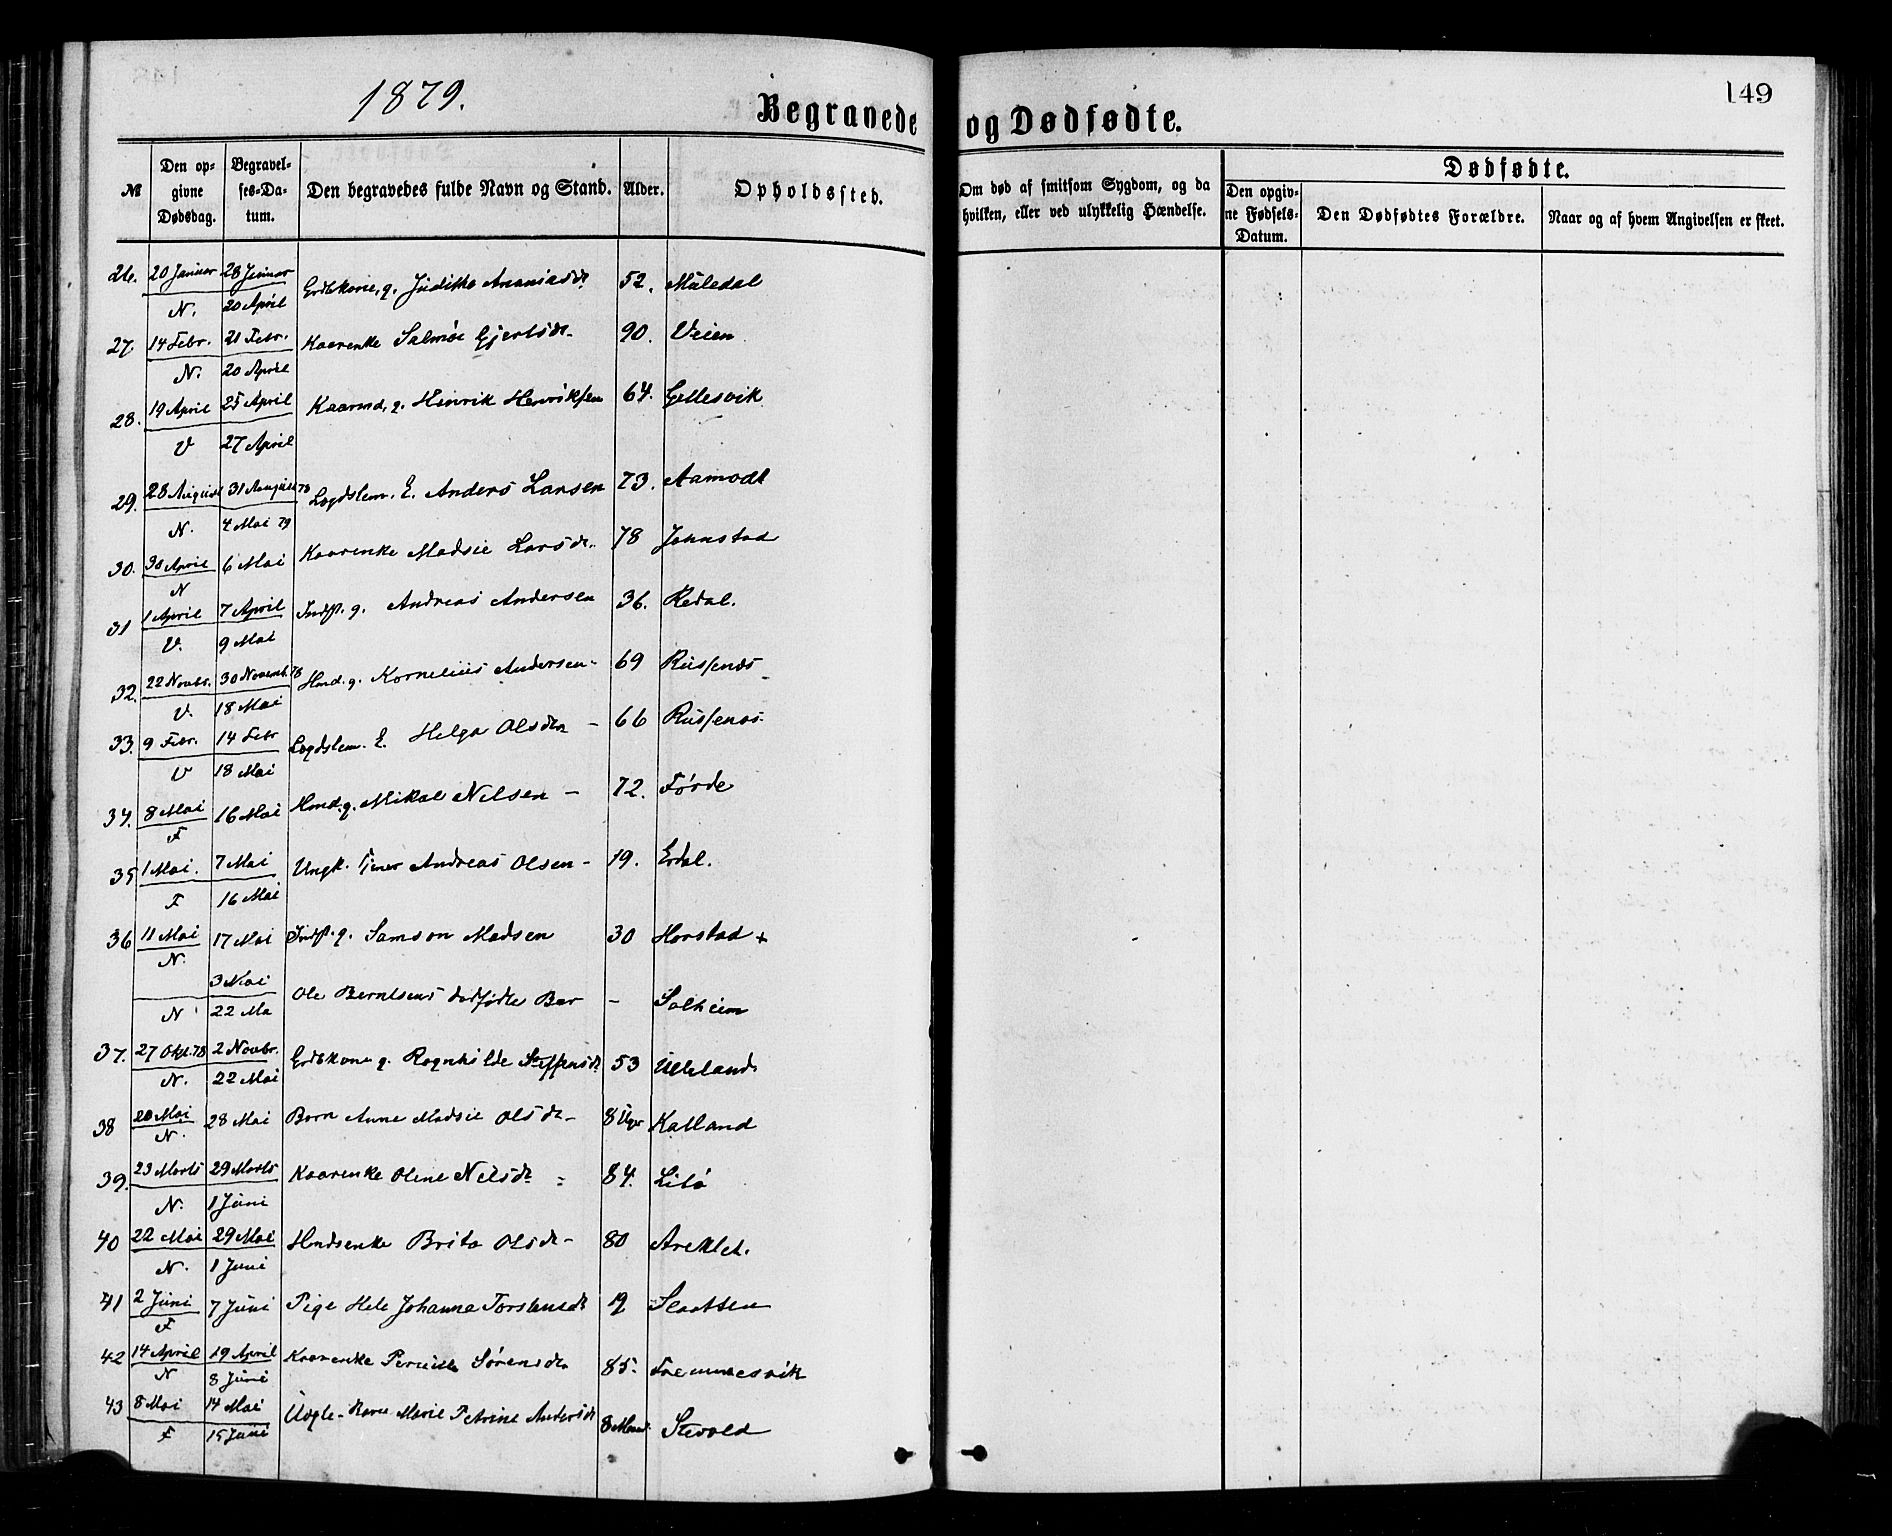 1879.
149
Begravede og Dødfødte.
№
Den opgivne Dødsdag.
Begravelses-Datum.
Den begravedes fulde Navn og Stand.
Alder.
Opholdssted.
Om død af smitsom Sygdom, og da hvilken, eller ved ulykkelig Hændelse.
Dødfødte.
Den opgivne Fødsels-Datum.
Den Dødfødtes Forældre.
Naar og af hvem Angivelsen er skeet.
26. 20 Januar 28 Januar Grdkone, g. Judithe Ananiasdr 52. Muledal
N. 20 April
27. 14 Febr. 21 Febr. Kaarenke Gjertsdr 90. Veien
N. 20 April
28. 19 April 25 April Kaarmd, g. Hinrik Henriksen 64. Gellesvik
V 27 April
29. 28 August 31 August 78 Lægdslem. E. Anders Larsen 73. Aamodt
N. 4 Mai 79
30. 30 April 6 Mai Kaarenke Madsie Larsdr. 78 Johnstad
N
31 1 April 7 April Indst. g. Andreas Andersen 36. Redal.
V. 9 Mai
32. 22 Novbr. 30 Novemb. 78 Hmd. g. Kornelius Andersen - 69 Russenæs
V. 18 Mai
33. 9 Febr. 14 Febr Lægdslem. E. Helga Olsdtr - 66 Russenæs.
V 18 Mai
34. 8 Mai 16 Mai Hmd. g. Mikal Nilsen - 72. Førde
F
35 1 Mai. 7 Mai Ungk. Tjener Andreas Olsen - 19. Erdal.
F 16 Mai
36 11 Mai 17 Mai Indst. g. Samson Madsen 30 Horstad +
N.
3 Mai Ole Berntsens dødfødte Bar - Solheim
N 22 Ma
37. 27 Okt. 78 2 Novbr. Grdkone g. Ragnhilde Steffensdr 53 Ulleland
N. 22 Mai
38 20 Mai 28 Mai Barn Anne Madsie Olsdr - 8 Uger Kalland
N.
39. 23 Marts 29 Marts Kaarenke Oline Nilsdr - 84. Litø
N. 1 Juni
40 22 Mai 29 Mai Hmdsenke Brita Olsdr - 80 Areklet.
N. 1 Juni
41 2 Juni 7 Juni Pige Hele Johanna Torstensdr 19 Slaatten
F
42 14 April 19 April Kaarenke Pernille Sørensdr 85. Fremmesvik
N 8 Juni
43 8 Mai 14 Mai Uægte - Barn Marie Petrine Andersdr 8 Maaned. Stevold
F 15 Juni